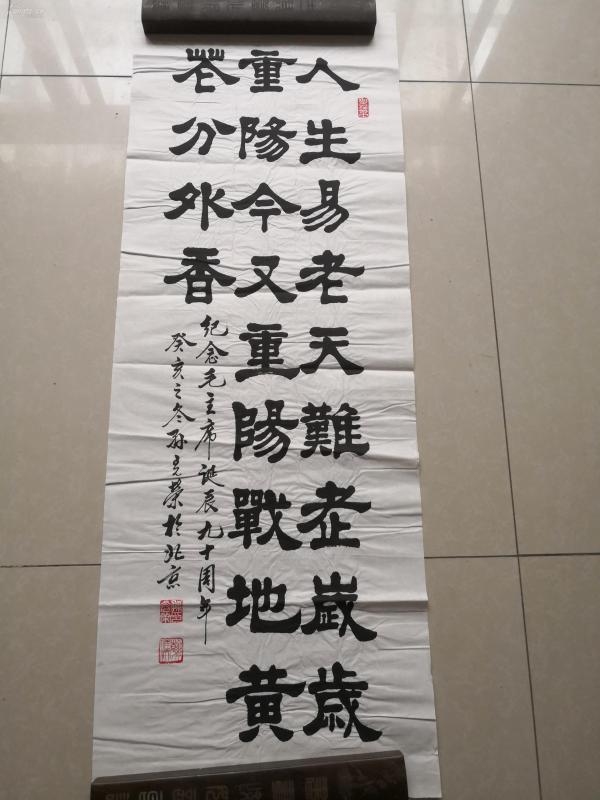 人生易老天難老歲歲
重陽今又重陽戰地黃
花分外香
紀念毛主席誕辰九十周年
癸亥之冬孫克榮於北京